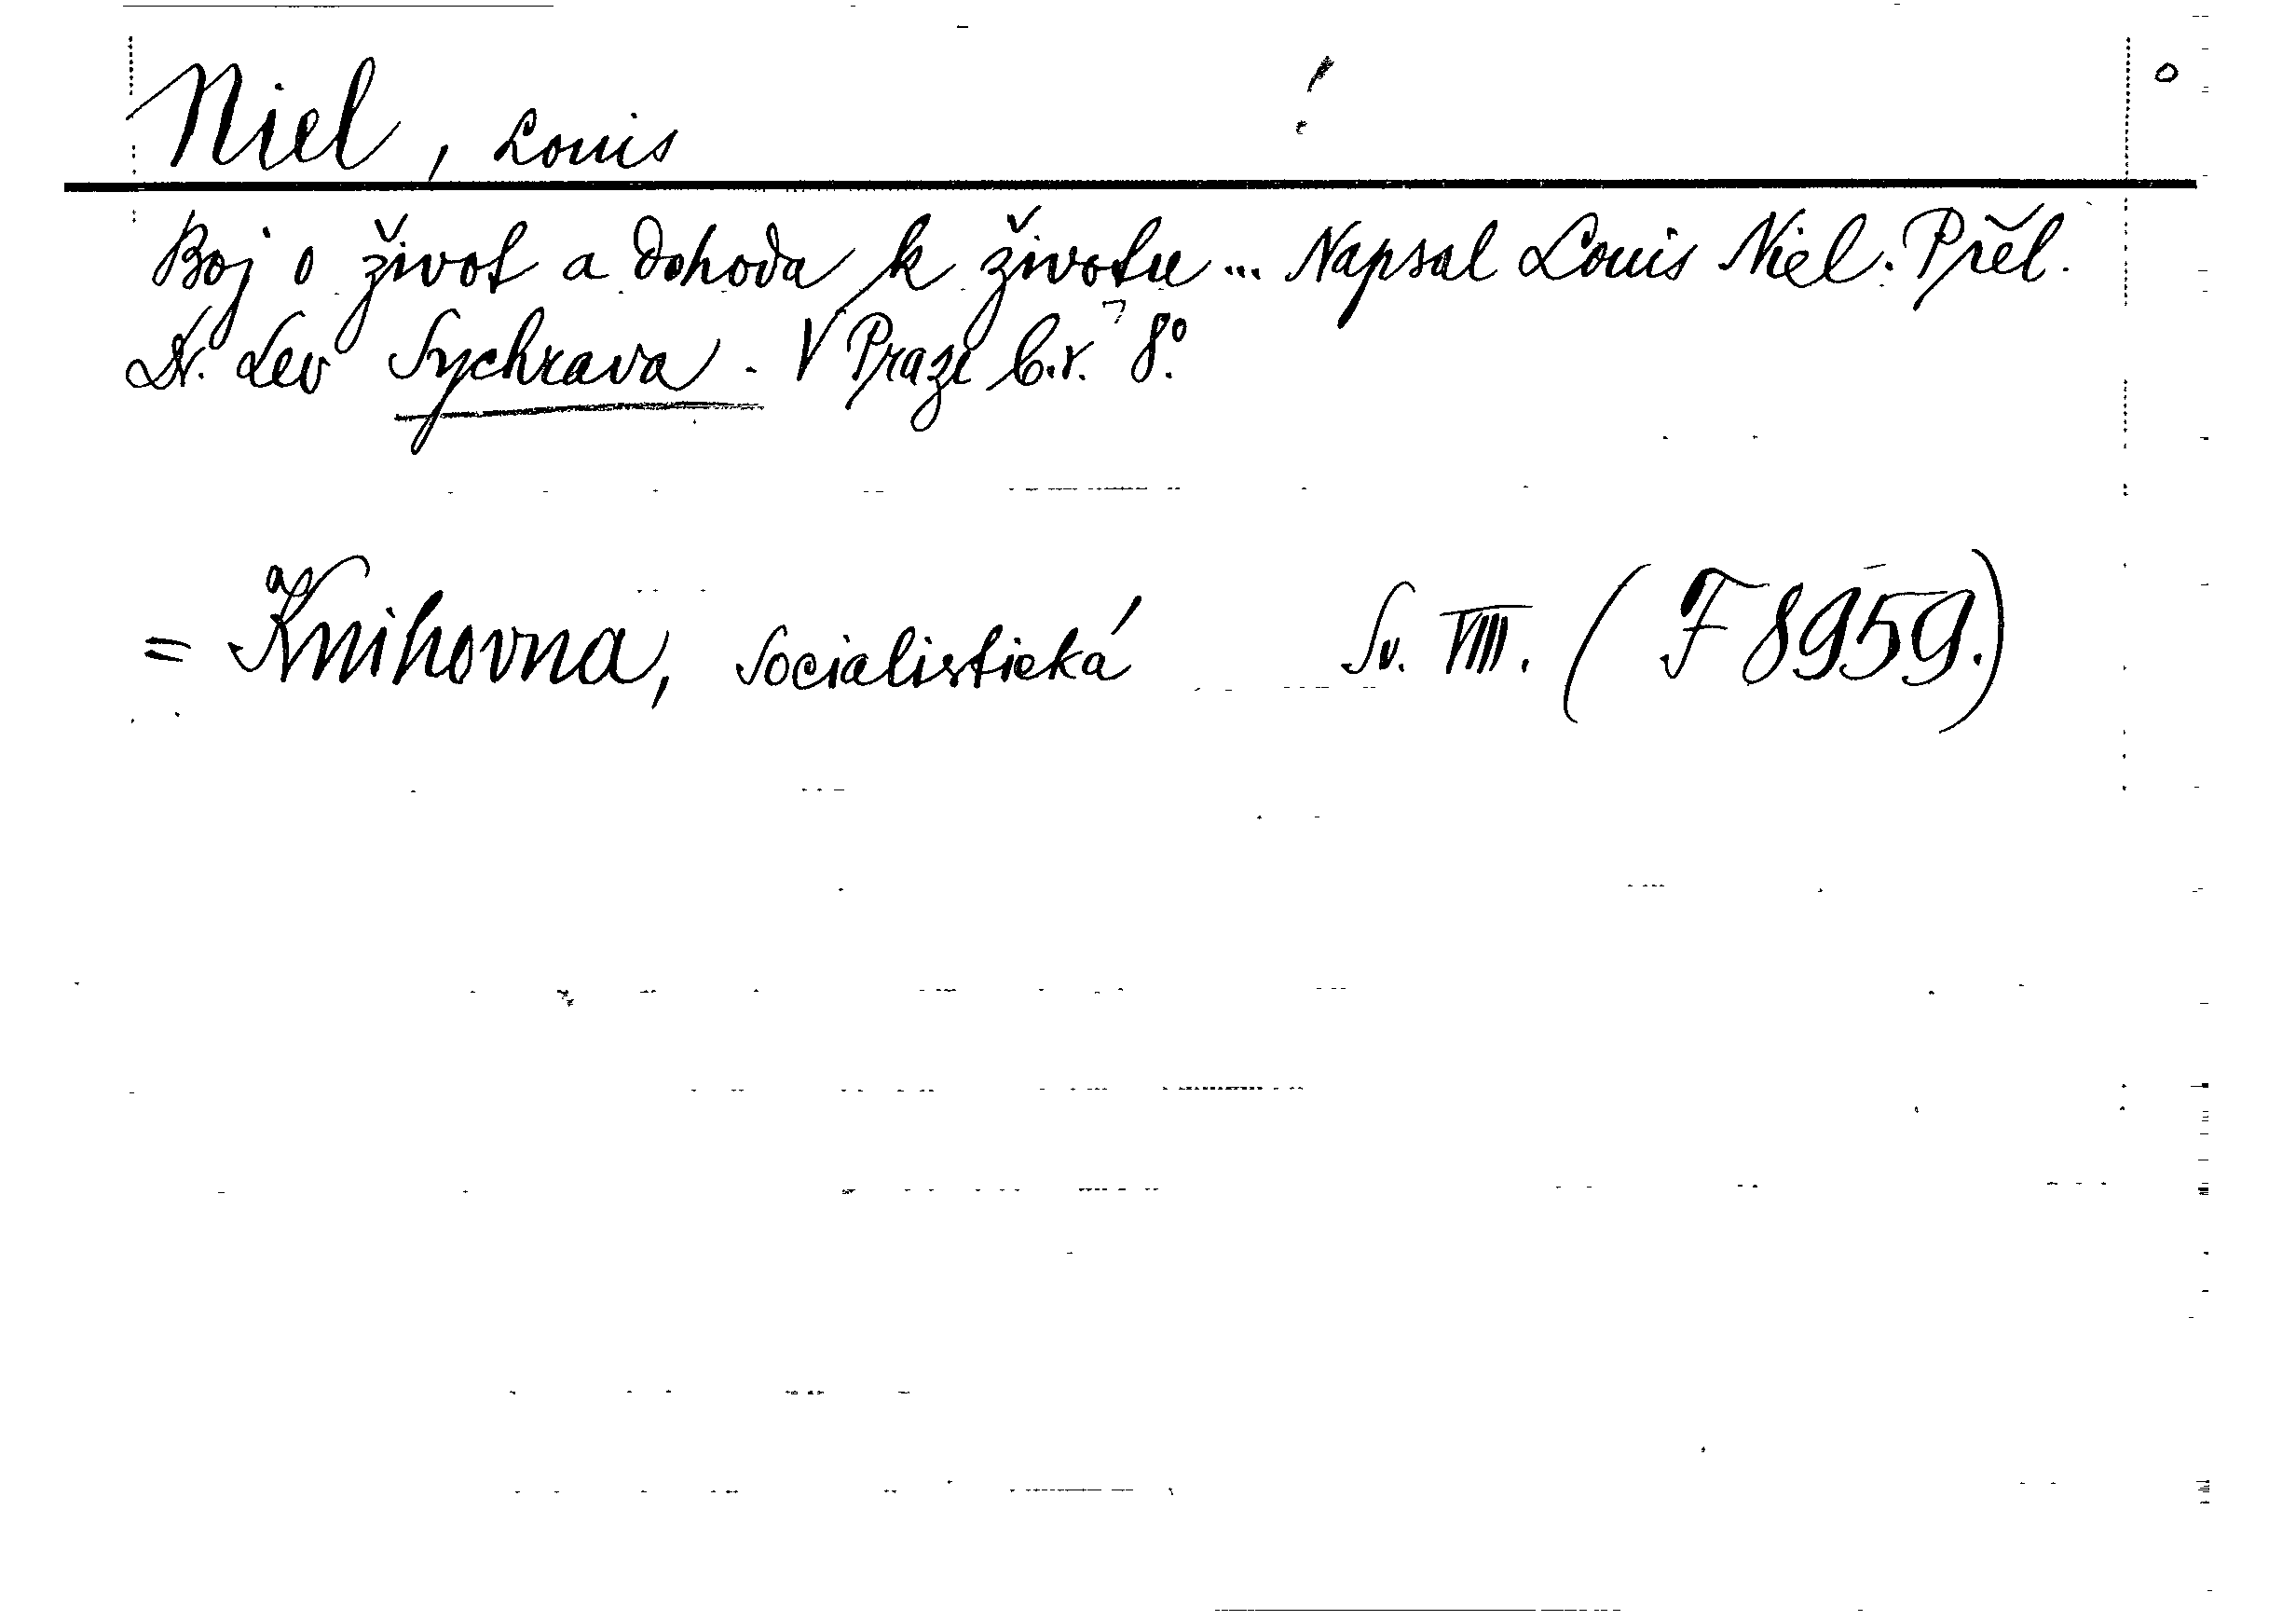 Niel, Louis !
Boj o život a dohoda k životu ... Napsal Louis Niel. Přel.
Dr. Lev Sychrava. V Praze b.r. 8°.
= Knihovna, socialistická Sv. VIII. (F 8959.)